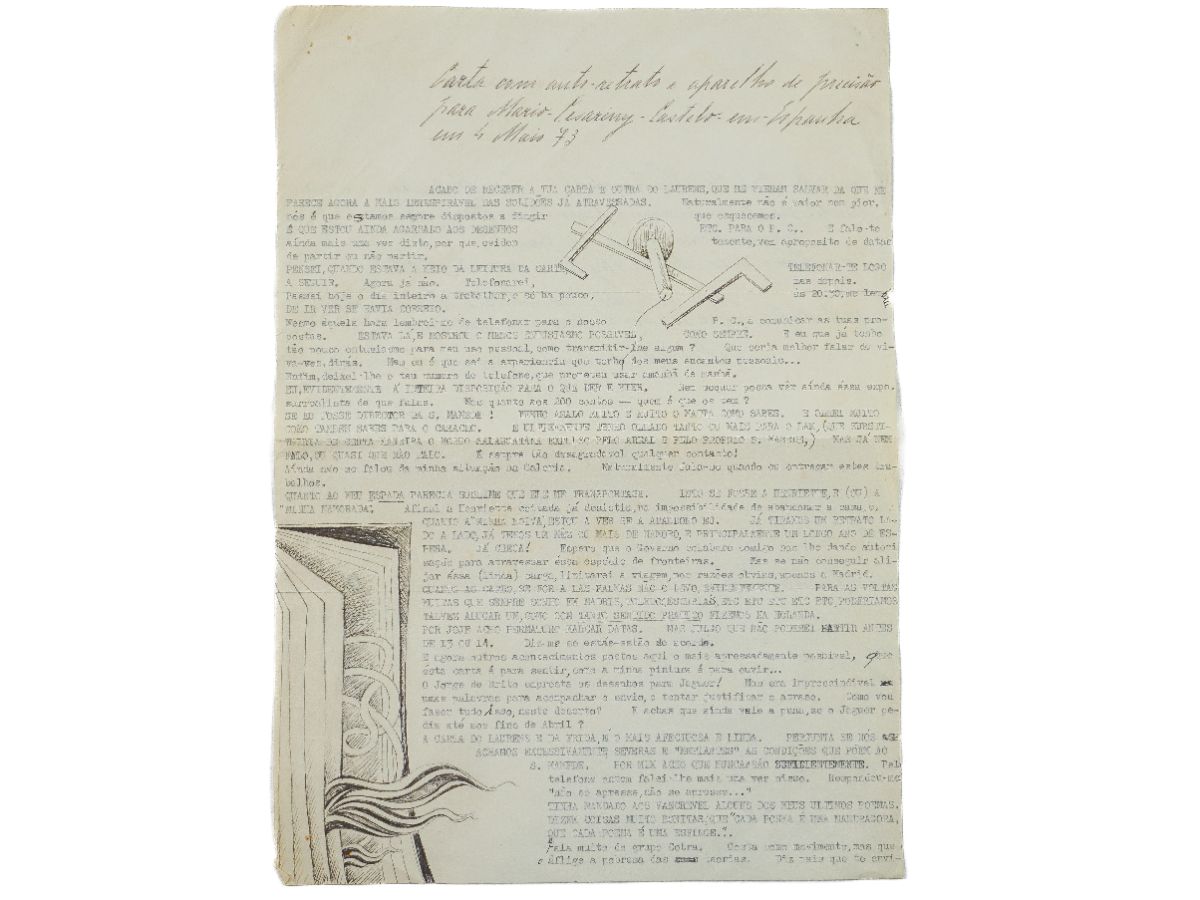 Carta com auto-retrato e aparelho de precisão
para Mario-Cesariny-Castelo-em-Espanha
em 4 Maio 73
ACABO DE RECEBER A TUA CARTA E OUTRA DO LAURENS, QUE ME VIERAM SALVAR DA QUE ME
PARECE AGORA A MAIS IRRESPIRAVEL DAS SOLIDÕES JÁ ATRAVESSADAS. Naturalmente não é maior nem pior,
nós é que estamos sempre dispostos a fingir que esquecemos.
É QUE ESTOU AINDA AGARRADO AOS DESENHOS ETC. PARA O P. C.. E falo-te
ainda mais uma vez disto, por que, evidentemente, vem aproposito de datas
de partir ou não partir,
PENSEI, QUANDO ESTAVA A MEIO DA LEITURA DA CARTA TELEFONAR-TE LOGO
A SEGUIR. Agora já não. Telefonarei, mas depois.
Passei hoje o dia inteiro a trabalhar, e só ha pouco, ás 20.30, me
DE IR VER SE HAVIA CORREIO.
Mesmo áquela hora lembrei-me de telefonar para o nosso P. C., a comunicar as tuas pro-
postas. ESTAVA LÁ, E MOSTROU O MENOS ENTUSIASMO POSSIVEL, COMO SEMPRE. E eu que já tenho
tão pouco entusiasmo para meu uso pessoal, como transmitir-lhe algum ? Que seria melhor falar de vi-
va-voz, diras. Mas eu é que sei a experiencia que tenho dos meus encantos pessoais...
Enfim, deixei-lhe o teu numero de telefone, que prometeu usar amanhã de manhã.
EU, EVIDENTEMENTE Á INTEIRA DISPOSIÇÃO PARA O QUE DER E VIER. Nem sequer posso vêr ainda éssa expo.
surrealista de que falas. Mas quanto aos 200 contos — quem é que os tem ?
SE EU FOSSE DIRECTOR DA S. MAMEDE ! TENHO MUITO E MUITO O COMO SABES. E MUITO
COMO TAMBEM SABES PARA O CAMACHO. E TENHO OLHADO TANTO OU MAIS PARA O (QUE
DE CERTA MANEIRA O MUNDO PELO E PELO PROPRIO S. MAMEDE,) MAS JÁ NEM
FALO, OU QUASI QUE NÃO FALO. É sempre tão desagradavel qualquer contacto!
Ainda não se falou da minha situação na Galeria. Naturalmente falo-ao quando eu entregar estes tra-
balhos.
QUANTO AO MEU ESPADA PARECIA SUBLIME QUE ELE ME TRANSPORTASSE. ISTO SE FOSSE A HENRIETTE, E (OU) A
"MINHA NAMORADA". Afinal a Henriette coitada já desistiu, na impossibilidade de abandonar a casa, e,
QUANTO Á MINHA NOIVA, ESTOU A VER SE A ABANDONO EU. JÁ TIRAMOS UM RETRATO LA-
DO A LADO, JÁ TEMOS UM MÊS OU MAIS DE NAMORO, E PRINCIPALMENTE UM LONGO ANO DE ES-
PERA. JÁ CHEGA! Espero que o Governo colabore comigo não lhe dando autori
zação para atravessar éssa especie de fronteiras. Mas se não conseguir ali-
jar éssa (linda) carga, limitarei a viagem, por razões obvias, apenas a Madrid.
QUANTO AO CARRO, SE FOR A LAS PALMAS NÃO O LEVO, EVIDENTEMENTE. PARA AS VOLTAS
VOLTAS QUE SEMPRE SONHO EM MADRID, TOLEDO, ESCORIAL, ETC ETC ETC ETC ETC, PODERIAMOS
TALVEZ ALUGAR UM, COMO COM TANTO SENTIDO PRATICO FIZEMOS NA HOLANDA.
POR HOJE ACHO PREMATURO MARCAR DATAS. MAS JULGO QUE NÃO PODEREI PARTIR ANTES
DE 13 OU 14. Diz-me se estás-estão de acordo.
E agora outros acontecimentos postos aqui o mais apressadamente possivel, que
esta carta é para sentir, como a minha pintura é para ouvir...
O Jorge de Brito empresta os desenhos para Jaguer! Mas era imprescindivel
umas palavras para acompanhar o envio, e tentar justificar o atraso. Como vou
fazer tudo isso, neste deserto? E achas que ainda vale a pena, se o Jaguer pe-
dia até aos fins de Abril ?
A CARTA DO LAURENS E DA FRIDA, É O MAIS AFECTUOSA E LINDA. PERGUNTA SE NÓS
ACHAMOS EXCESSIVAMENTE SEVERAS E "EXIGENTES" AS CONDIÇÕES QUE PÕEM AO
S. MAMEDE. POR MIM ACHO QUE NUNCA SERÃO SUFICIENTEMENTE. Pelo
telefone ontem falei-lhe mais uma vez nisso. Respondeu-me
"não se apresse, não se apresse..."
TINHA MANDADO AOS VANCREVEL ALGUNS DOS MEUS ULTIMOS POEMAS.
DIZEM COISAS MUITO BONITAS, QUE "CADA POEMA É UMA MANDRAGORA,
QUE CADA POEMA É UMA ESFINGE".
Fala muito do grupo Cobra. Gosta como movimento, mas que
o aflige a pobresa das teorias. Diz mais que te envi-